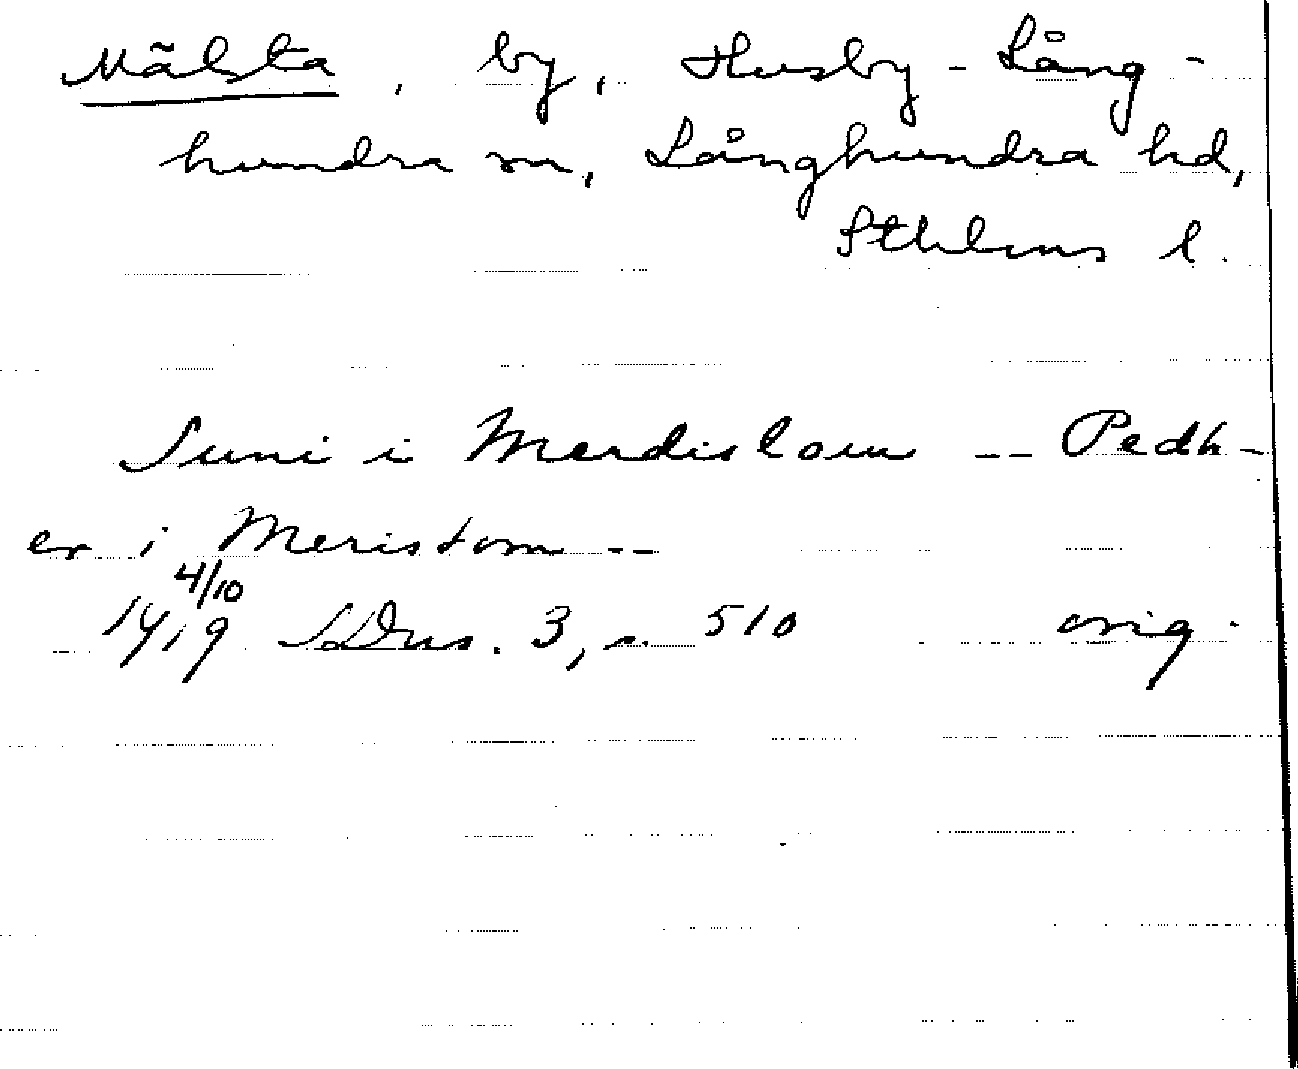 Mälsta, by, Husby-Lång-
hundra sn, Långhundra hd,
Sthlms l.
Suni i Merdislom -- Pedh-
er i Meristom --
4/10
1419 SDns. 3, s. 510 orig.